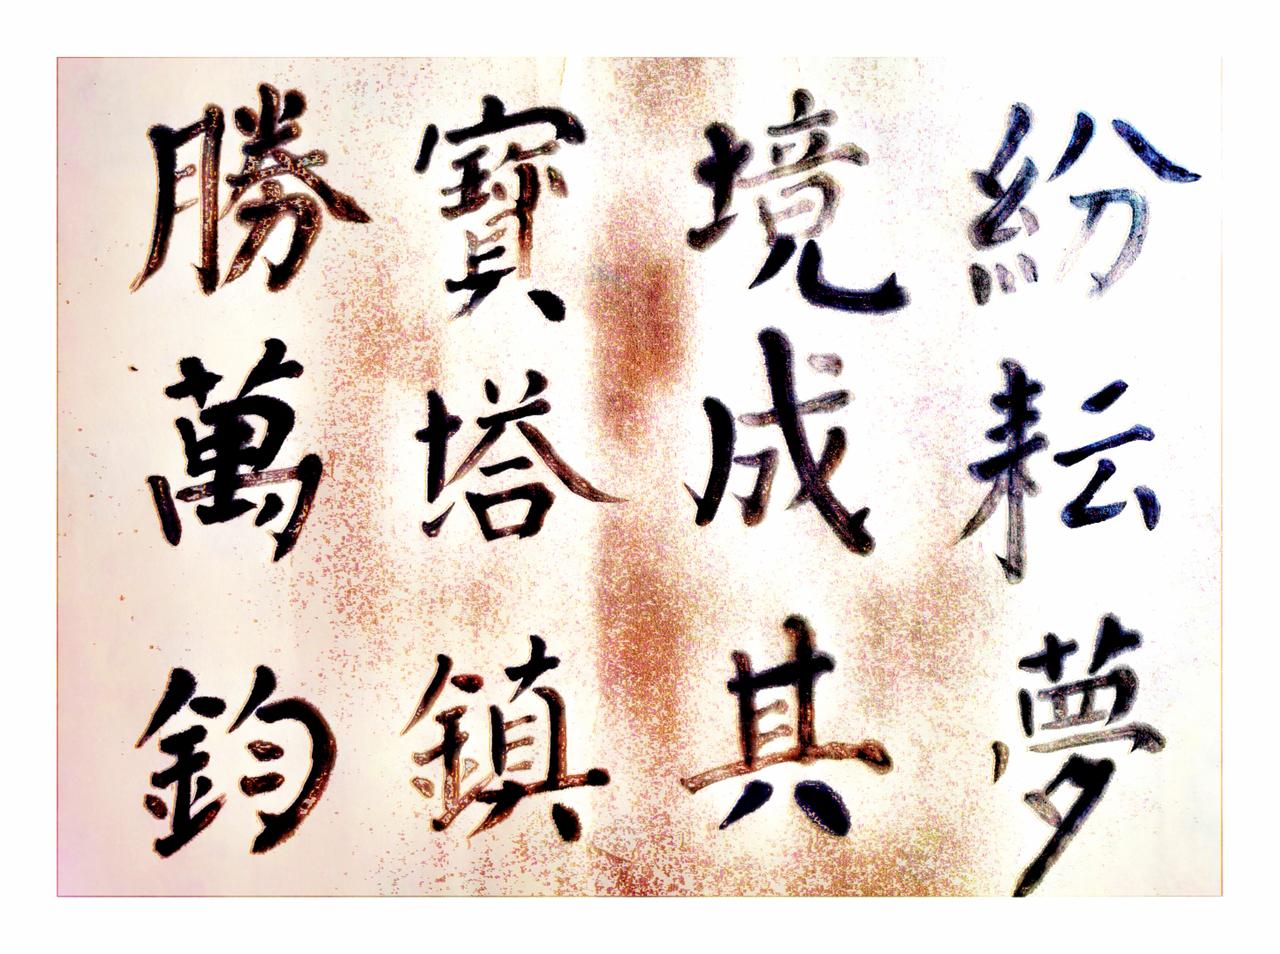 紛耘夢
境成其
寶塔鎮
勝萬鈞